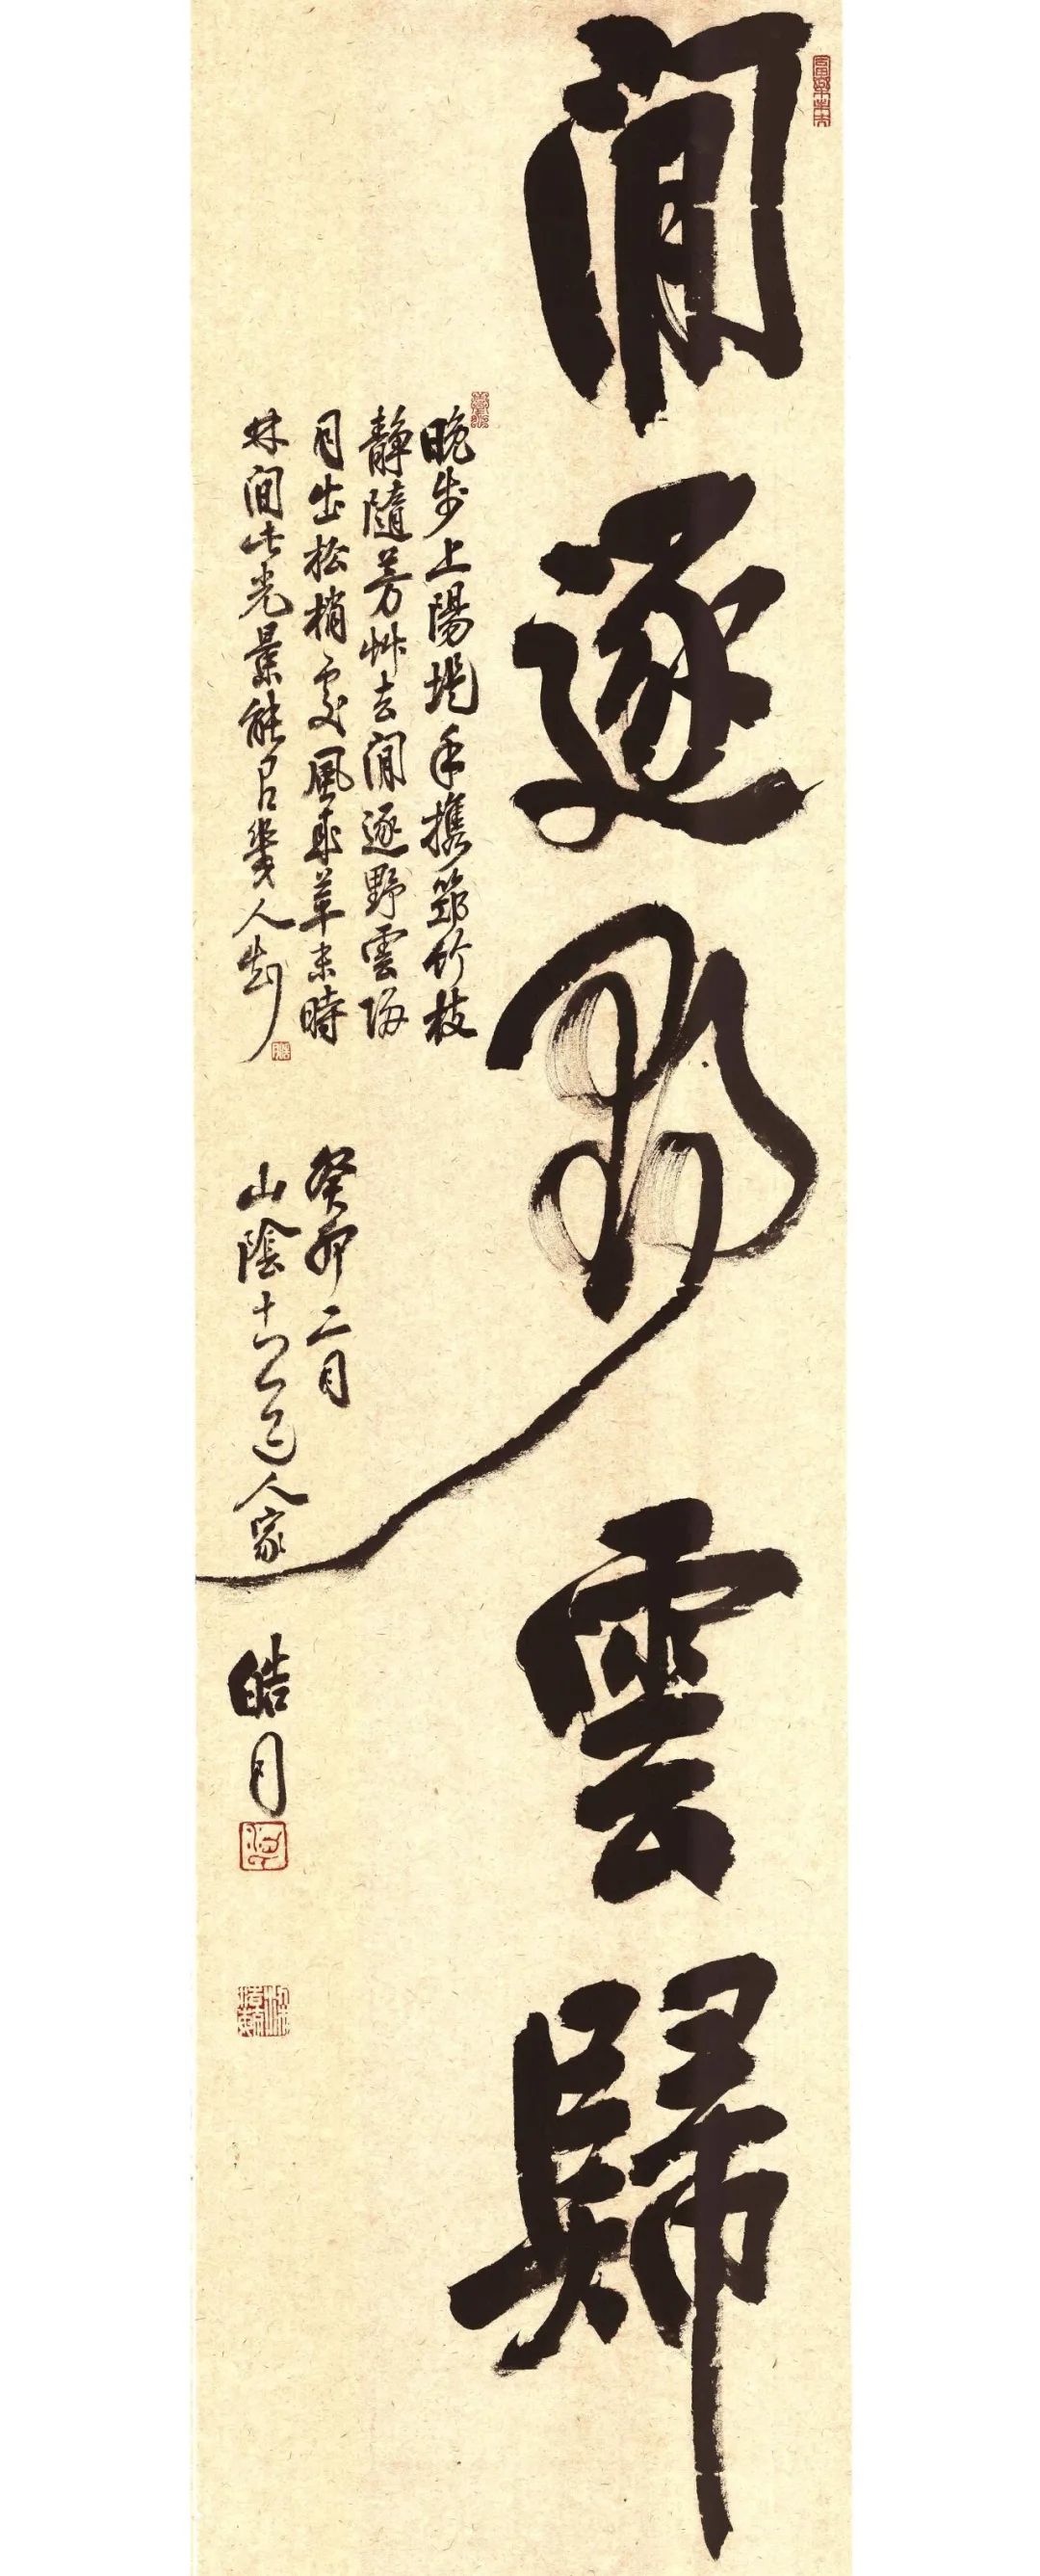 閒逐野雲歸
晚步上陽堤手攜筇竹枝
靜隨芳艸去閒逐野雲歸
月出松梢處風來草末時
林間此光景能有幾人知
癸卯二月
山陰人家
皓月